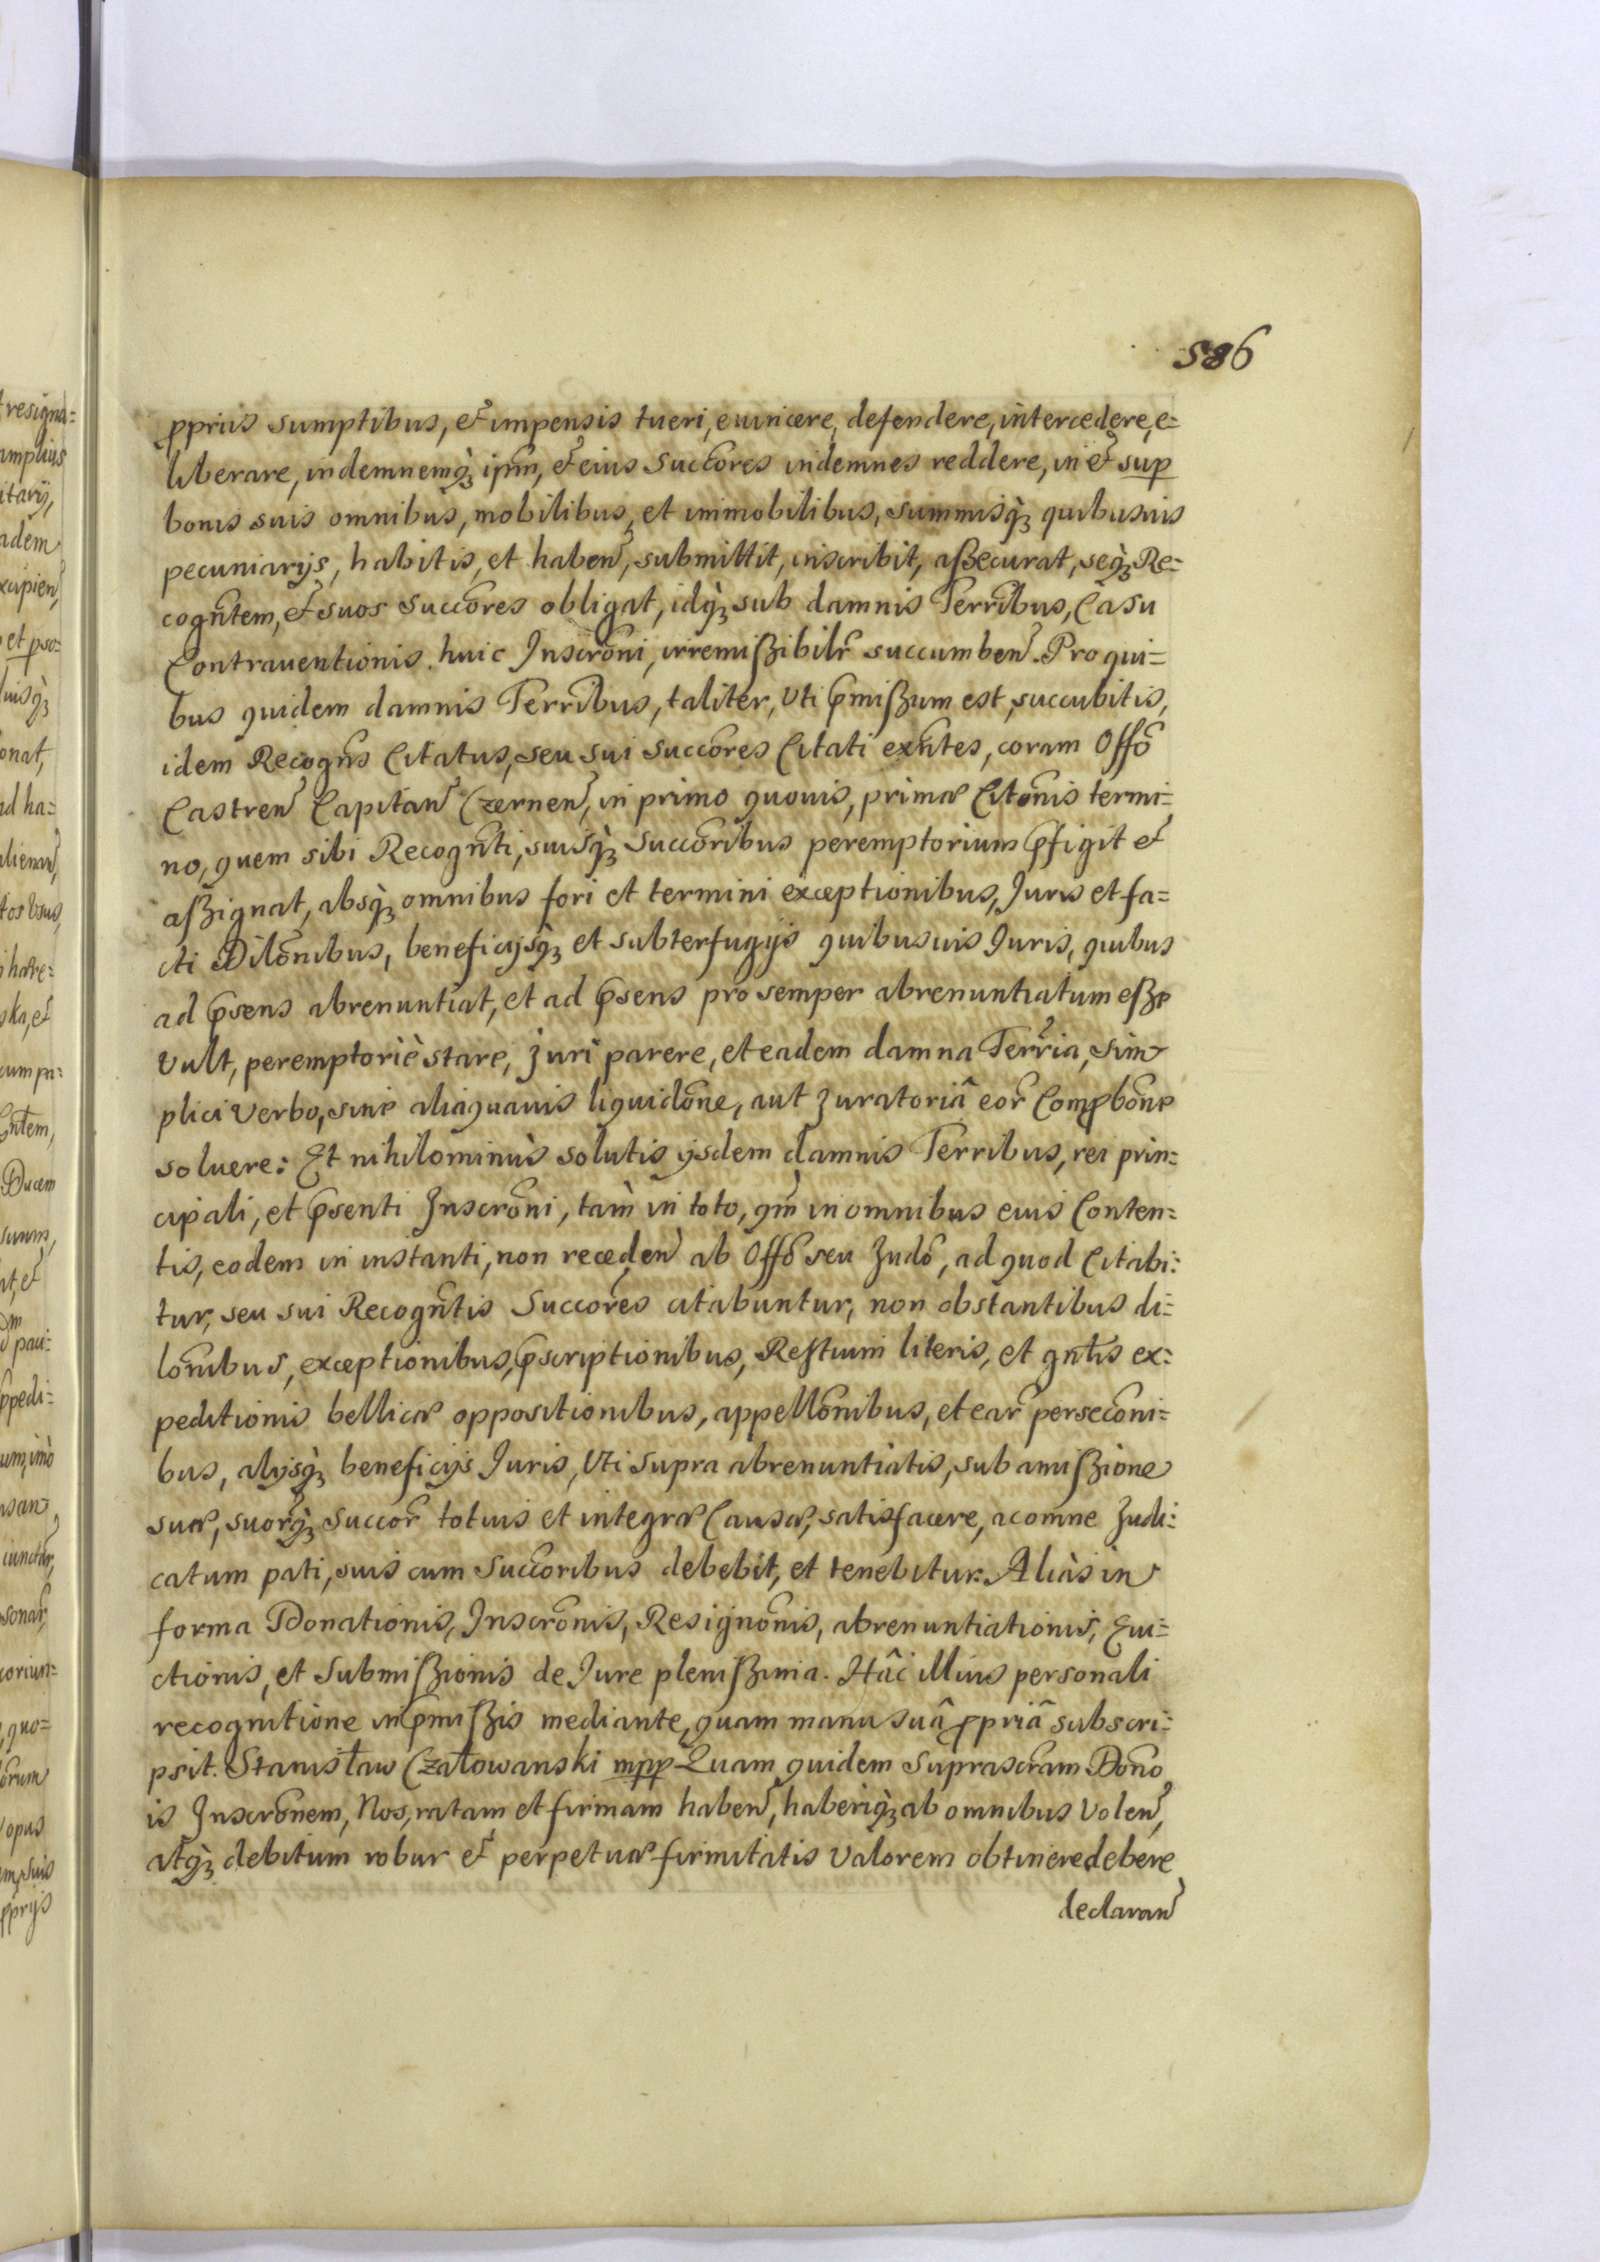 586
pprius sumptibus, et impensis tueri, euincere, defendere, intercedere, e=
liberare, indemnemq́ꝫ ipm̄, et eius Succōres indemnes reddere, in et sup
bonis suis omnibus, mobilibus, et immobilibus, summisq́ꝫ quibusuis
pecuniarijs, habitis, et haben̄, submittit, inscribit, aßecurat, seq́ꝫ Re=
cogn̄tem, et suos Succōres obligat, idq́ꝫ sub damnis Terrībus, Casu
Contrauentionis huic Inscrōni, irremißibilr̄ succumben̄. Pro qui=
bus quidem damnis Terrībus, taliter, Vti p̄mißum est, succubitis,
idem Recogn̄s Citatus, seu sui Succōres Citati exn̄tes, coram Offō
Castren̄ Capitan̄ Czernen̄, in primo quouis, primæ Citōnis termi=
no, quem sibi Recogn̄ti, suisq́ꝫ Succōribus peremptorium p̄figit et
aßignat, absq́ꝫ omnibus fori et termini exceptionibus, Juris et fa=
cti Dilōnibus, beneficijsq́ꝫ et subterfugijs quibusuis Juris, quibus
ad p̄sens abrenuntiat, et ad p̄sens pro semper abrenuntiatum eße
Vult, peremptoriè stare, Juri parere, et eadem damna Terr̄ia, sim
plici Verbo, sine aliaquauis liquidōne, aut Juratoriâ eor̄ Compbōne
soluere: Et nihilominùs solutis ijsdem damnis Terribus, rei prin=
cipali, et p̄senti Inscrōni, tam̀ in toto, qm̄ in omnibus eius Conten=
tis, eodem in instanti, non receden̄ ab Offō seu Judō, ad quod Citabi=
tur, seu sui Recogn̄tis Succōres citabuntur, non obstantibus di=
lōnibus, exceptionibus, p̄scriptionibus, Restium literis, et gn̄tis ex=
peditionis bellicæ oppositionibus, appellōnibus, et ear̄ persecōni=
bus, alijsq́ꝫ beneficijs Juris, Vti supra abrenuntiatis, sub amißione
suæ, suorq́ꝫ Succōr̄ totius et integræ Causæ, satisfacere, ac omne Judi=
catum pati, suis cum Succōribus debebit, et tenebitur. Aliàs in
forma Donationis, Inscrōnis, Resignōnis, abrenuntiationis, Eui=
ctionis, et Submißionis de Jure plenißima. Hâc illius personali
recognitione in p̄mißis mediante, quam manu suâ ppriâ subscri=
psit. Stanisław Czałowanski mpp Quam quidem Suprascr̄am Dōno
is Inscrōnem, Nos, ratam et firmam haben̄, haberiq́ꝫ ab omnibus Volen̄,
atq́ꝫ debitum robur et perpetuæ firmitatis Valorem obtinere debere
declaran̄